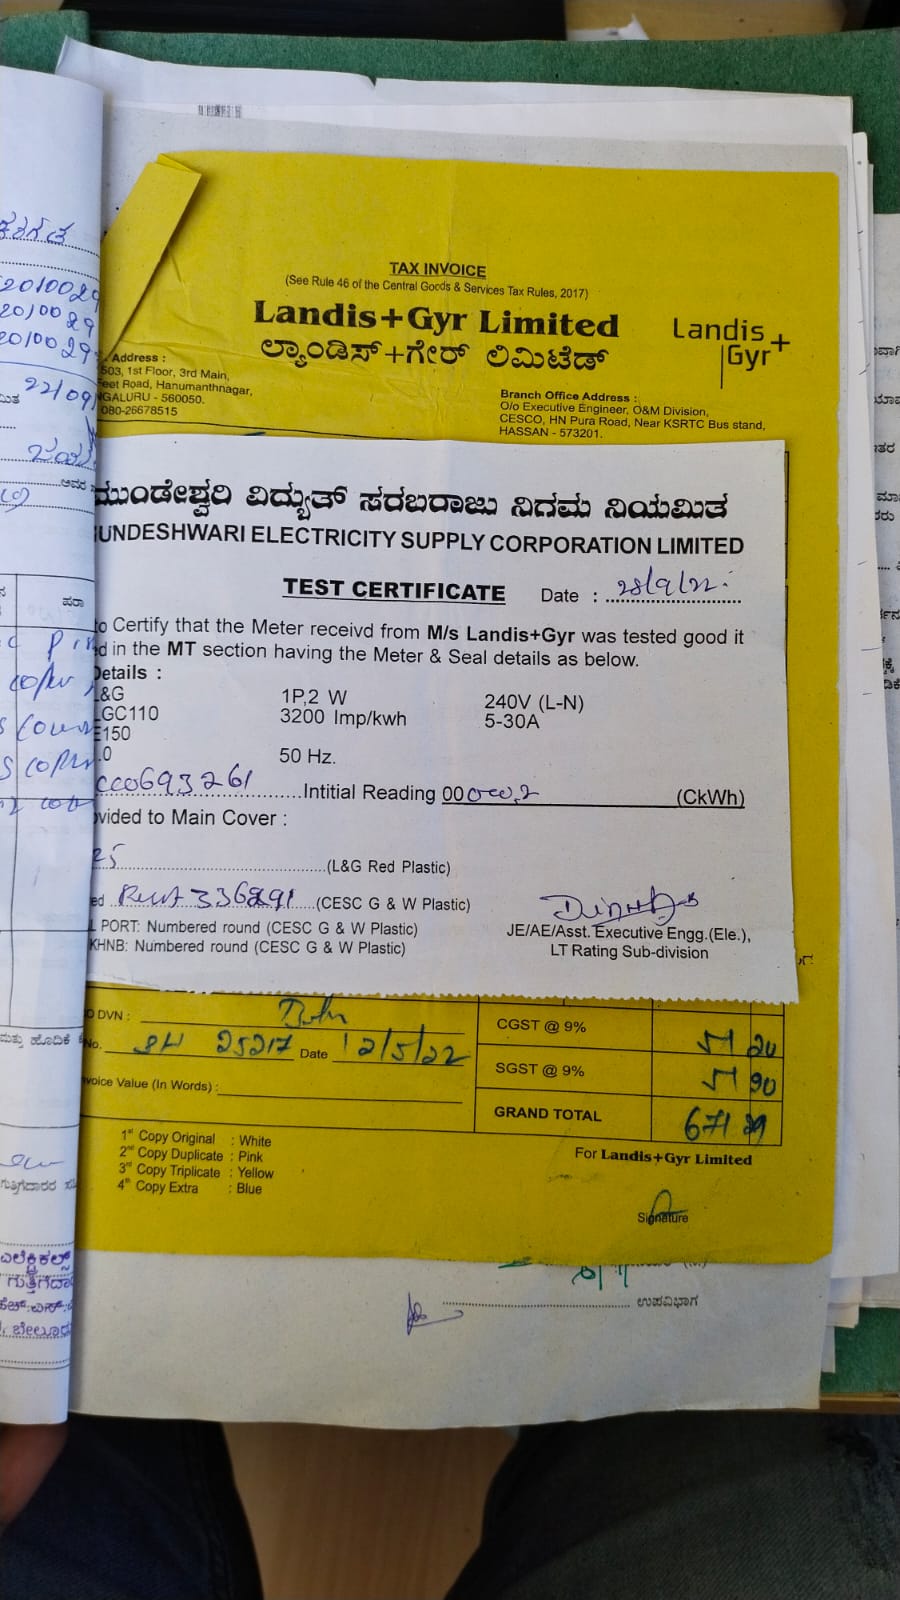 ಕರಗದ
2010029
2010029
2010029
22/09
TAX INVOICE
(See Rule 46 of the Central Goods & Services Tax Rules, 2017)
Landis+Gyr Limited
ಲ್ಯಾಂಡಿಸ್+ಗೇರ್ ಲಿಮಿಟೆಡ್
Landis+
Gyr
Address :
503, 1st Floor, 3rd Main,
eet Road, Hanumanthnagar,
NGALURU - 560050.
080-26678515
Branch Office Address :
O/o Executive Engineer, O&M Division,
CESCO, HN Pura Road, Near KSRTC Bus stand,
HASSAN - 573201.
ಮುಂಡೇಶ್ವರಿ ವಿದ್ಯುತ್ ಸರಬರಾಜು ನಿಗಮ ನಿಯಮಿತ
UNDESHWARI ELECTRICITY SUPPLY CORPORATION LIMITED
TEST CERTIFICATE
Date : 28/9/22
to Certify that the Meter receivd from M/s Landis+Gyr was tested good it
d in the MT section having the Meter & Seal details as below.
Details :
L&G 1P,2 W 240V (L-N)
LGC110 3200 Imp/kwh 5-30A
E150
.0 50 Hz.
CC0693261 Intitial Reading 00000.2 (CkWh)
ovided to Main Cover :
25 (L&G Red Plastic)
ed 336291 (CESC G & W Plastic)
L PORT: Numbered round (CESC G & W Plastic)
KHNB: Numbered round (CESC G & W Plastic)
JE/AE/Asst. Executive Engg.(Ele.),
LT Rating Sub-division
O DVN :
No. 25217 Date 12/5/22
nvoice Value (In Words) :
CGST @ 9% 51 20
SGST @ 9% 51 90
GRAND TOTAL 671 29
1st Copy Original : White
2nd Copy Duplicate : Pink
3rd Copy Triplicate : Yellow
4th Copy Extra : Blue
For Landis+Gyr Limited
Signature
ಉಪವಿಭಾಗ
ಪರಾ
ಮತ್ತು ಹೊದಿಕೆ
ಗುತ್ತಿಗೆದಾರರ ಸ
ಎಲೆಕ್ಟ್ರಿಕಲ್ಸ್
ಗುತ್ತಿಗೆದಾ
ಹೆಚ್.ಎಸ್.
ಬೇಲೂರು